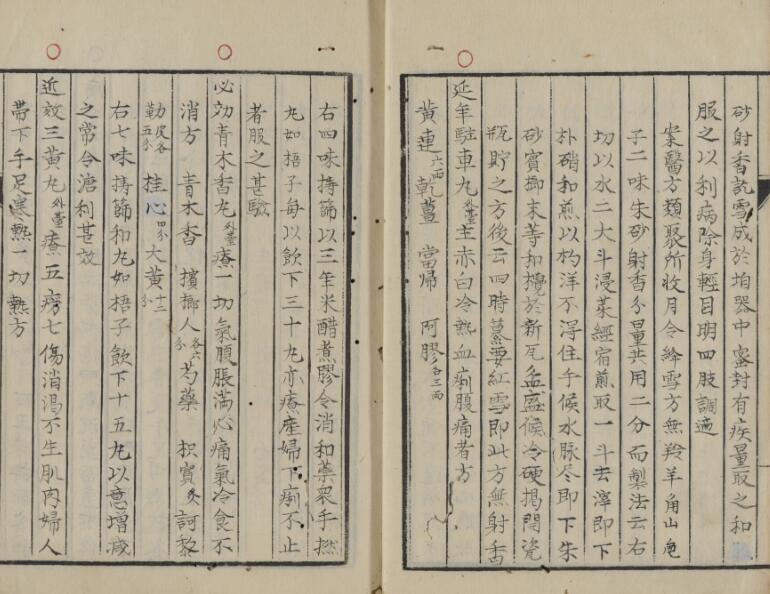 砂射香訖雪成於垍器中蜜封有疾量取之和
服之以利病除身輕目明四肢調適
案醫方類聚所收月令絳雪方無羚羊角山梔
子二味朱砂射香分量共用二分而製法云右
切以水二大斗浸藥經宿煎取一斗去滓即下
朴硝和煎以杓洋不淂住手候水脉尽即下朱
砂實擲末等和攪於新瓦盆盛候冷硬揭開瓷
瓶貯之方後云四時要紅雪即此方無射香
延年駐車丸外臺主赤白冷熱血痢腹痛者方
黄連六兩 乾薑 當帰 阿膠各三兩
右四味擣篩以三年米醋煮膠令消和藥衆手撚
丸如梧子每以飲下三十丸亦療産婦下痢不止
者服之甚驗
必効青木香丸外臺療一切氣腹脹滿心痛氣冷食不
消方 青木香 擯榔人各六分 芍藥 枳實炙 訶黎
勒皮各五分 桂心四分 大黄十二分
右七味擣篩和丸如梧子飲下十五丸以意增減
之常令溏利甚效
近效三黄丸外臺療五癆七傷消渇不生肌肉婦人
帶下手足寒熱一切熱方